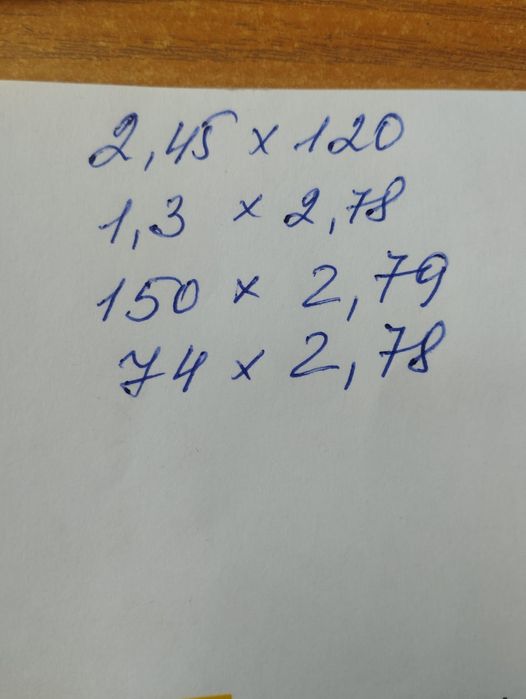 2,45 × 120
1,3 × 2,78
150 × 2,79
74 × 2,78